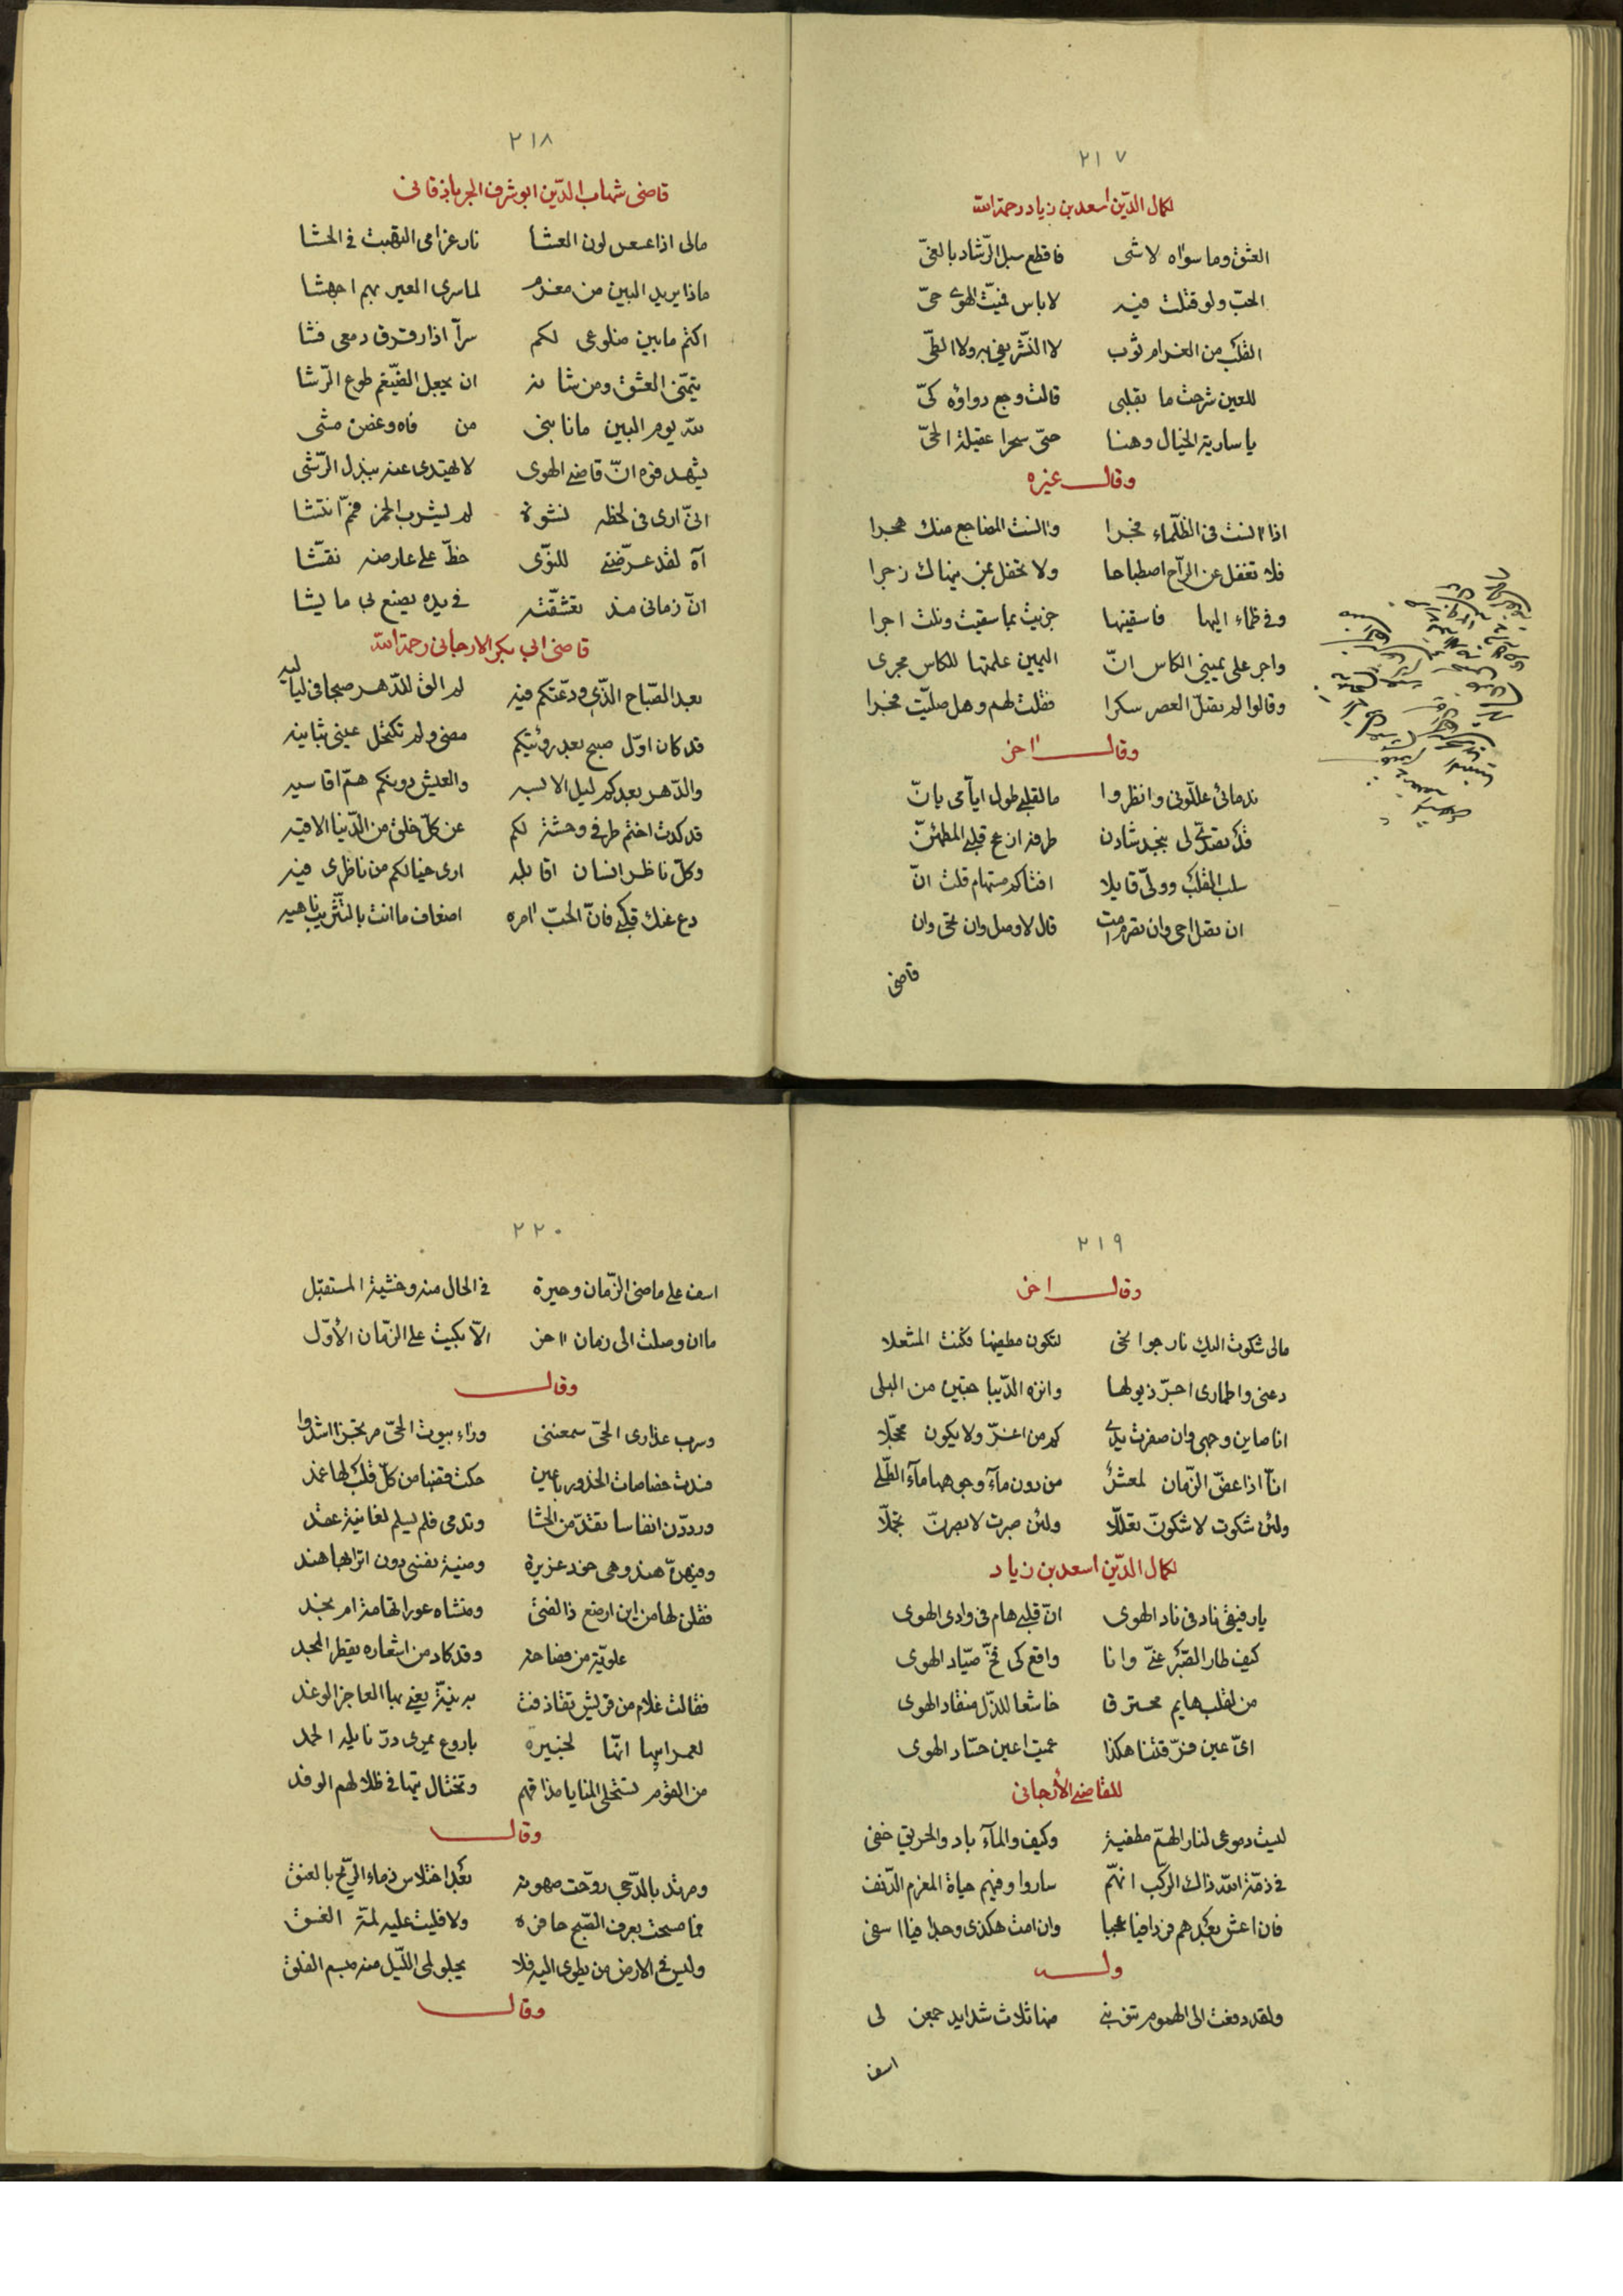 ٢١٧
لكمال الدّين اسعد بن زياد رحمة الله
العشق وما سواه لا شى فاقطع سبل الرّشاد بالغىّ
الحبّ ولو قتلت فيه لا باس فميّت الهوى حىّ
القلب من الغرام ثوب لا النّشر يفى به ولا الطىّ
للعين شرحت ما بقلبى قالت وجع دواؤه كىّ
يا سارية الخيال وهنا حىّ سحرا عقيلة الحىّ
وقال غيره
اذا انست فى الظّلماء فجرا وانست المضاجع منك هجرا
فلا تغفل عن الرّاح اصطباحا ولا تحفل بمن ينهاك زجرا
وفى ظماء اليها فاسقينها جزيت بما سقيت ونلت اجرا
واجر على يمينى الكاس انّ اليمين علمتها للكاس مجرى
وقالوا لم يقتل العصر سكرا فقلت لهم وهل صلّيت فجرا
وقال اخر
ندمائى علّلونى وانظروا ما لقلبى طول ايّامى يانّ
قد تصدّى لى بنجد شادن طرفه ازعج قلبى المطمئنّ
سلب القلب وولّى قايلا افشاكم مستهام قلت انّ
ان نقل احى وان نقر مت قال لا وصل وان تحى وان
قاضى
٢١٨
قاضى شهاب الدّين ابو شرف الجرباذقانى
مالى اذا عسعس لون العشا نار غرامى التهبت فى الحشا
ماذا يريد البين من مغرم لما سرى العير بهم اجهشا
اكتم ما بين ضلوعى لكم سرّا اذا رقرق دمعى فشا
يتمنّى العشق ومن شانه ان يجعل الضّيغم طوع الرّشا
لله يوم البين مانا بنى من فاه وغصن مشى
يشهد فوه انّ قاضى الهوى لا يهتدى عنه ببذل الرّشى
انّى ارى فى لحظه نشوة لم يشرب الخمر فممّ انتشا
آه لقد عرّضنى للنّوى خطّ على عارضه نقّشا
انّ زمانى مذ تعشّقته فى يده يصنع بى ما يشا
قاضى ابى بكر الارجانى رحمة الله
بعد الصّباح الذّى ودّعتكم فيه لم الق للدّهر صبحا فى لياليه
قد كان اوّل صبح بعد رؤيتكم مضى ولم تكتحل عينى بثانيه
والدّهر بعدكم ليل الابسه والعيش دونكم همّ اقاسيه
قد كدت اختم طرفى وحشة لكم عن كلّ خلق من الدّنيا الاقيه
وكلّ ناظر انسان اقابله ارى خيالكم من ناظرى فيه
دع عنك قلبى فانّ الحبّ امره اضعاف ما انت بالتّثريب ناهيه
٢١٩
وقال اخر
مالى شكوت اليك نار جوانحى لتكون مطفيها فكنت المشعلا
دعنى واطمارى اجرّ ذيولها وانزه الدّيبا حبتين من البلى
انا صاين وجهى وان صفرت يدى كم من اغرّ ولا يكون محجّلا
انّا اذا عضّ الزّمان لمعشر من دون مآء وجوههما مآء الطّلى
ولئن شكوت لا شكونّ تعلّلا ولئن صبرت لا صبرنّ تجمّلا
لكمال الدّين اسعد بن زياد
يا رفيقى ناد فى ناد الهوى انّ قلبى هام فى وادى الهوى
كيف طار الصّبر عنّى وانا واقع كى فخّ صيّاد الهوى
من لقلب هايم محترق خاشعا للذّل منقاد الهوى
اىّ عين فرّقتنا هكذا عميت اعين حسّاد الهوى
للقاضى الأرجانى
ليست دموعى لنار الهمّ مطفية وكيف والمآء باد والحريق خفى
فى ذمّة الله ذاك الرّكب انّهم ساروا وفيهم حياة المغرم الدّنف
فان اعش بعدهم فردا فيا عجبا وان امت هكذى وجدا فيا اسفى
وله
ولقد دفعت الى الهموم تنوبنى منها ثلاث شدايد جمعن لى
اسف
٢٢٠
اسف على ماضى الزّمان وحيرة فى الحال منه وخشية المستقبل
ما ان وصلت الى زمان اخر الاّ بكيت على الزّمان الأوّل
وقال
وسرب عذارى الحىّ سمعننى ورآء بيوت الحىّ مرتجزا اشدوا
فسدّت خصاصات الخدور باعين حكت قضبا من كلّ قلب لها غمد
وردّدن انفاسا تقدّ من الحشا وتدمى فلم يسلم لغانية عقد
وفيهنّ هند وهى خود غريرة ومنية نفسى دون اترابها هند
فقلن لها من اين ارضع ذا الفتى ومنشاه غور التهامة ام نجد
علويّة من فصاحة وقد كاد من اشعاره يقطر المجد
فقالت غلام من قريش تقاذفت به نيّة يعنى بها العاجز الوغد
لعمر ابيها انّها لخبيرة باروع يمرى درّ نايله الحمد
من القوم تستحلى المنايا مذاقهم وتختال تيها فى ظلالهم الوفد
وقال
ومرتد بالدّجى روّحت صهوته بعد اختلاس ذماء الرّمح بالعنق
فما صبحت بعرف الصّبح حافره ولا فليت عليه لمّة الغسق
وليس فى الارض من يطوى اليه فلا يجلو لى اللّيل منه مبسم الفلق
وقال